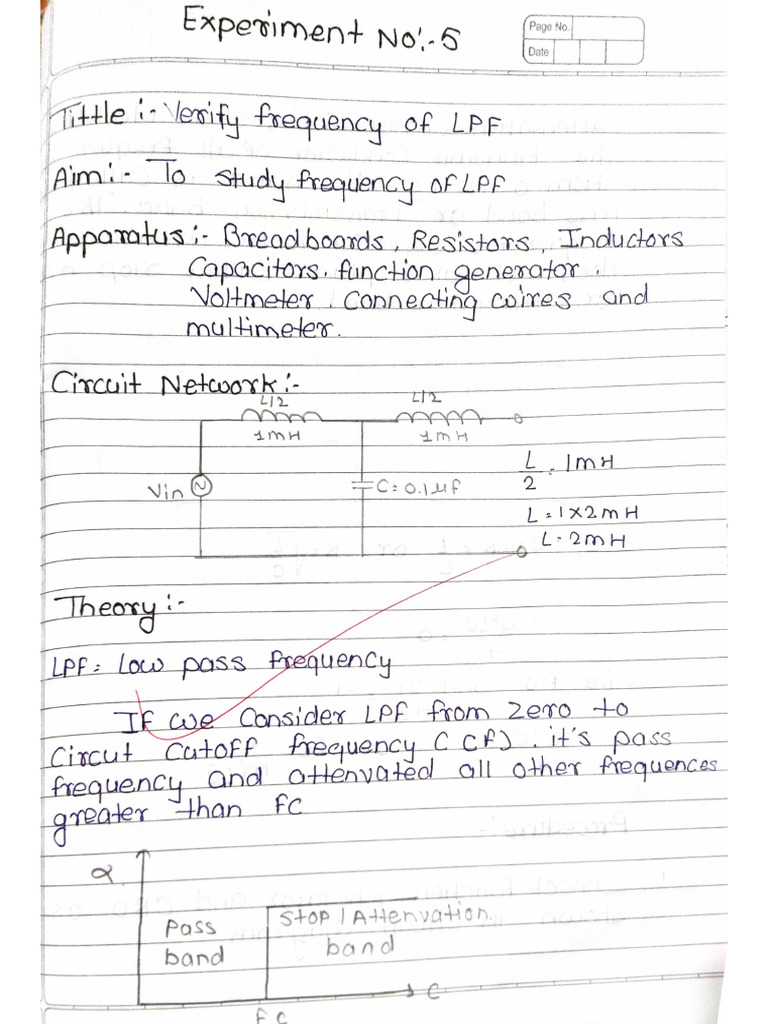 Experiment No:-5
Page No.
Date
Tittle :- Verify frequency of LPF
Aim :- To study frequency of LPF
Apparatus :- Breadboards, Resistors, Inductors
Capacitors. function generator.
Voltmeter. Connecting wires and
multimeter.
Circuit Network :-
L/2
L/2
1mH
1mH
Vin
C = 0.1μf
L/2 = 1mH
L = 1x2mH
L = 2mH
Theory :-
LPF = Low pass frequency
If we Consider LPF from zero to
Circut Cutoff frequency (CF). it's pass
frequency and attenvated all other frequences
greater than FC
α
Pass
band
Stop / Attenvation
band
C
FC